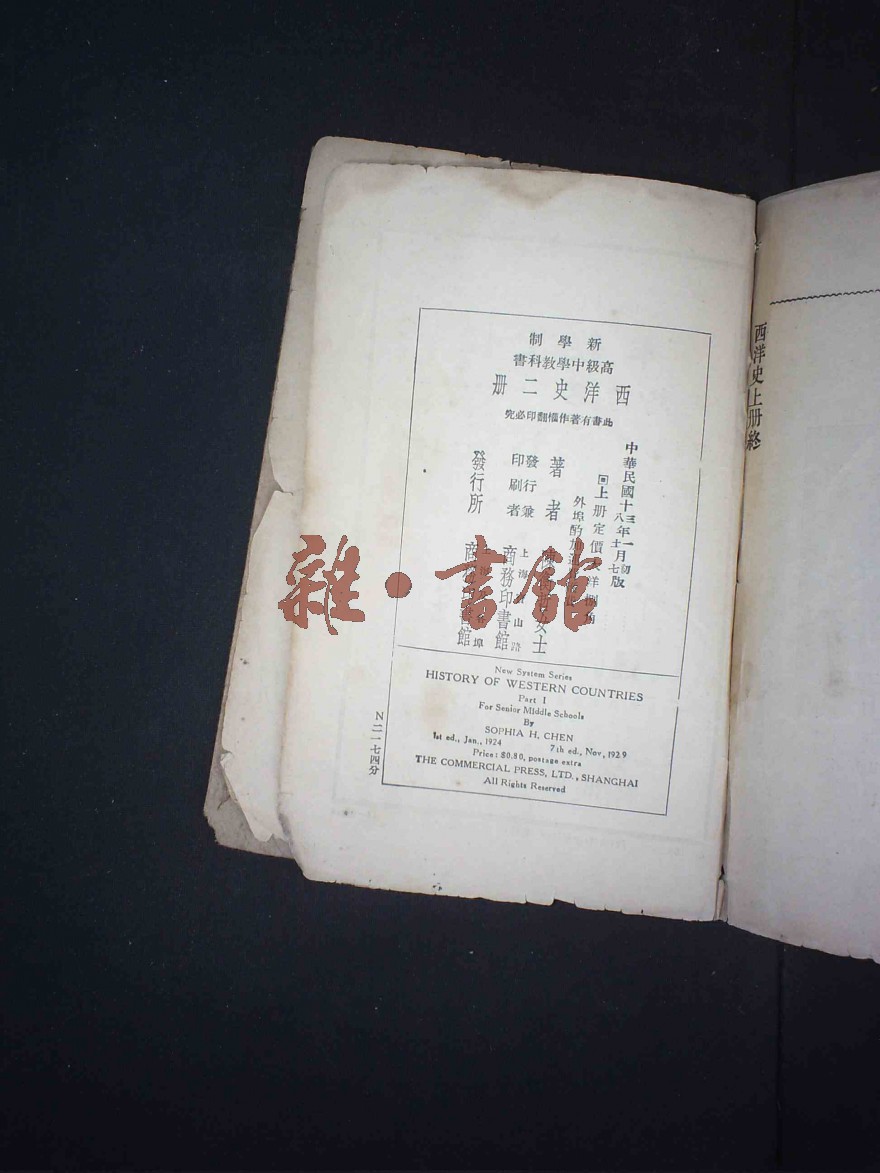 新學制
高級中學教科書
西洋史二冊
此書有著作權翻印必究
中華民國十三年一月初版
十八年十一月七版
上冊定價大洋捌角
外埠酌加
著者 女士
發行兼印刷者 上海 山路 商務印書館
發行所 商 書館
New System Series
HISTORY OF WESTERN COUNTRIES
Part I
For Senior Middle Schools
By
SOPHIA H. CHEN
1st ed., Jan., 1924 7th ed., Nov, 1929
Price: $0.80, postage extra
THE COMMERCIAL PRESS, LTD., SHANGHAI
All Rights Reserved
N二一七四分
西洋史上册終
雜·書館